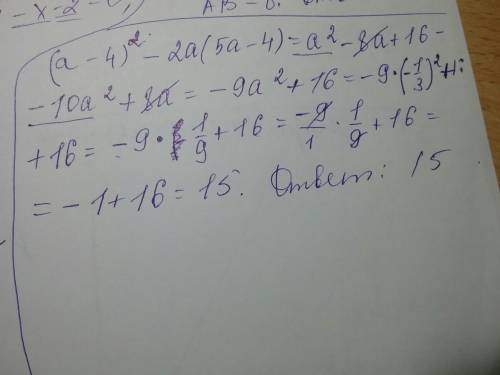 (a - 4)² - 2a(5a - 4) = a² - 8a + 16 -
- 10a² + 8a = -9a² + 16 = -9 · (-1/3)² +
+ 16 = -9 · 1/9 + 16 = -9/1 · 1/9 + 16 =
= -1 + 16 = 15. Ответ: 15